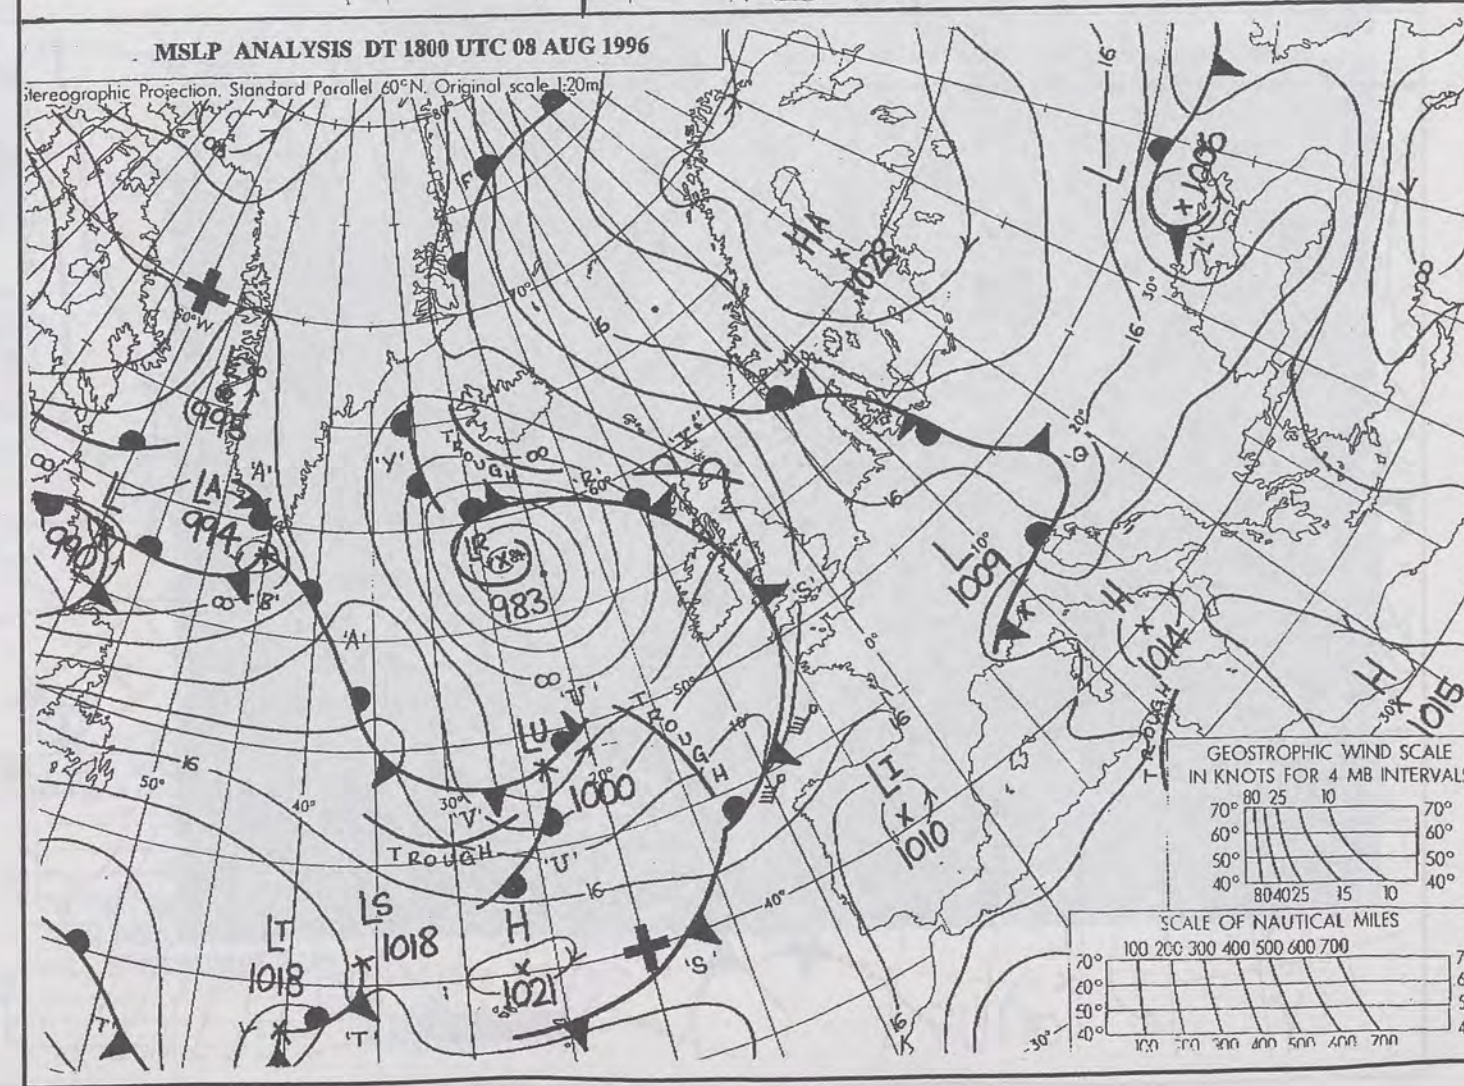 MSLP ANALYSIS DT 1800 UTC 08 AUG 1996
Stereographic Projection. Standard Parallel 60°N. Original scale 1:20m
16
L
1006
HA
1028
70°
16
30°
8
50°W
995
'A'
LA
994
L
990
8
'B'
'A'
'Y'
TROUGH
8
60°
LR
984
983
'X'
16
20°
'Q'
16
L
10°
1009
'S'
0°
H
1014
H
30°
1015
8
'U'
TROUGH
50°
10°
LU
20°
1000
16
50°
40°
30°
'V'
TROUGH
'U'
16
40°
16
LI
1010
TROUGH
LT
1018
LS
1018
H
1021
'S'
'T'
'T'
16
30°
GEOSTROPHIC WIND SCALE
IN KNOTS FOR 4 MB INTERVALS
80 25 10
70° 70°
60° 60°
50° 50°
40° 40°
80 40 25 15 10
SCALE OF NAUTICAL MILES
100 200 300 400 500 600 700
70°
60°
50°
40°
100 200 300 400 500 600 700